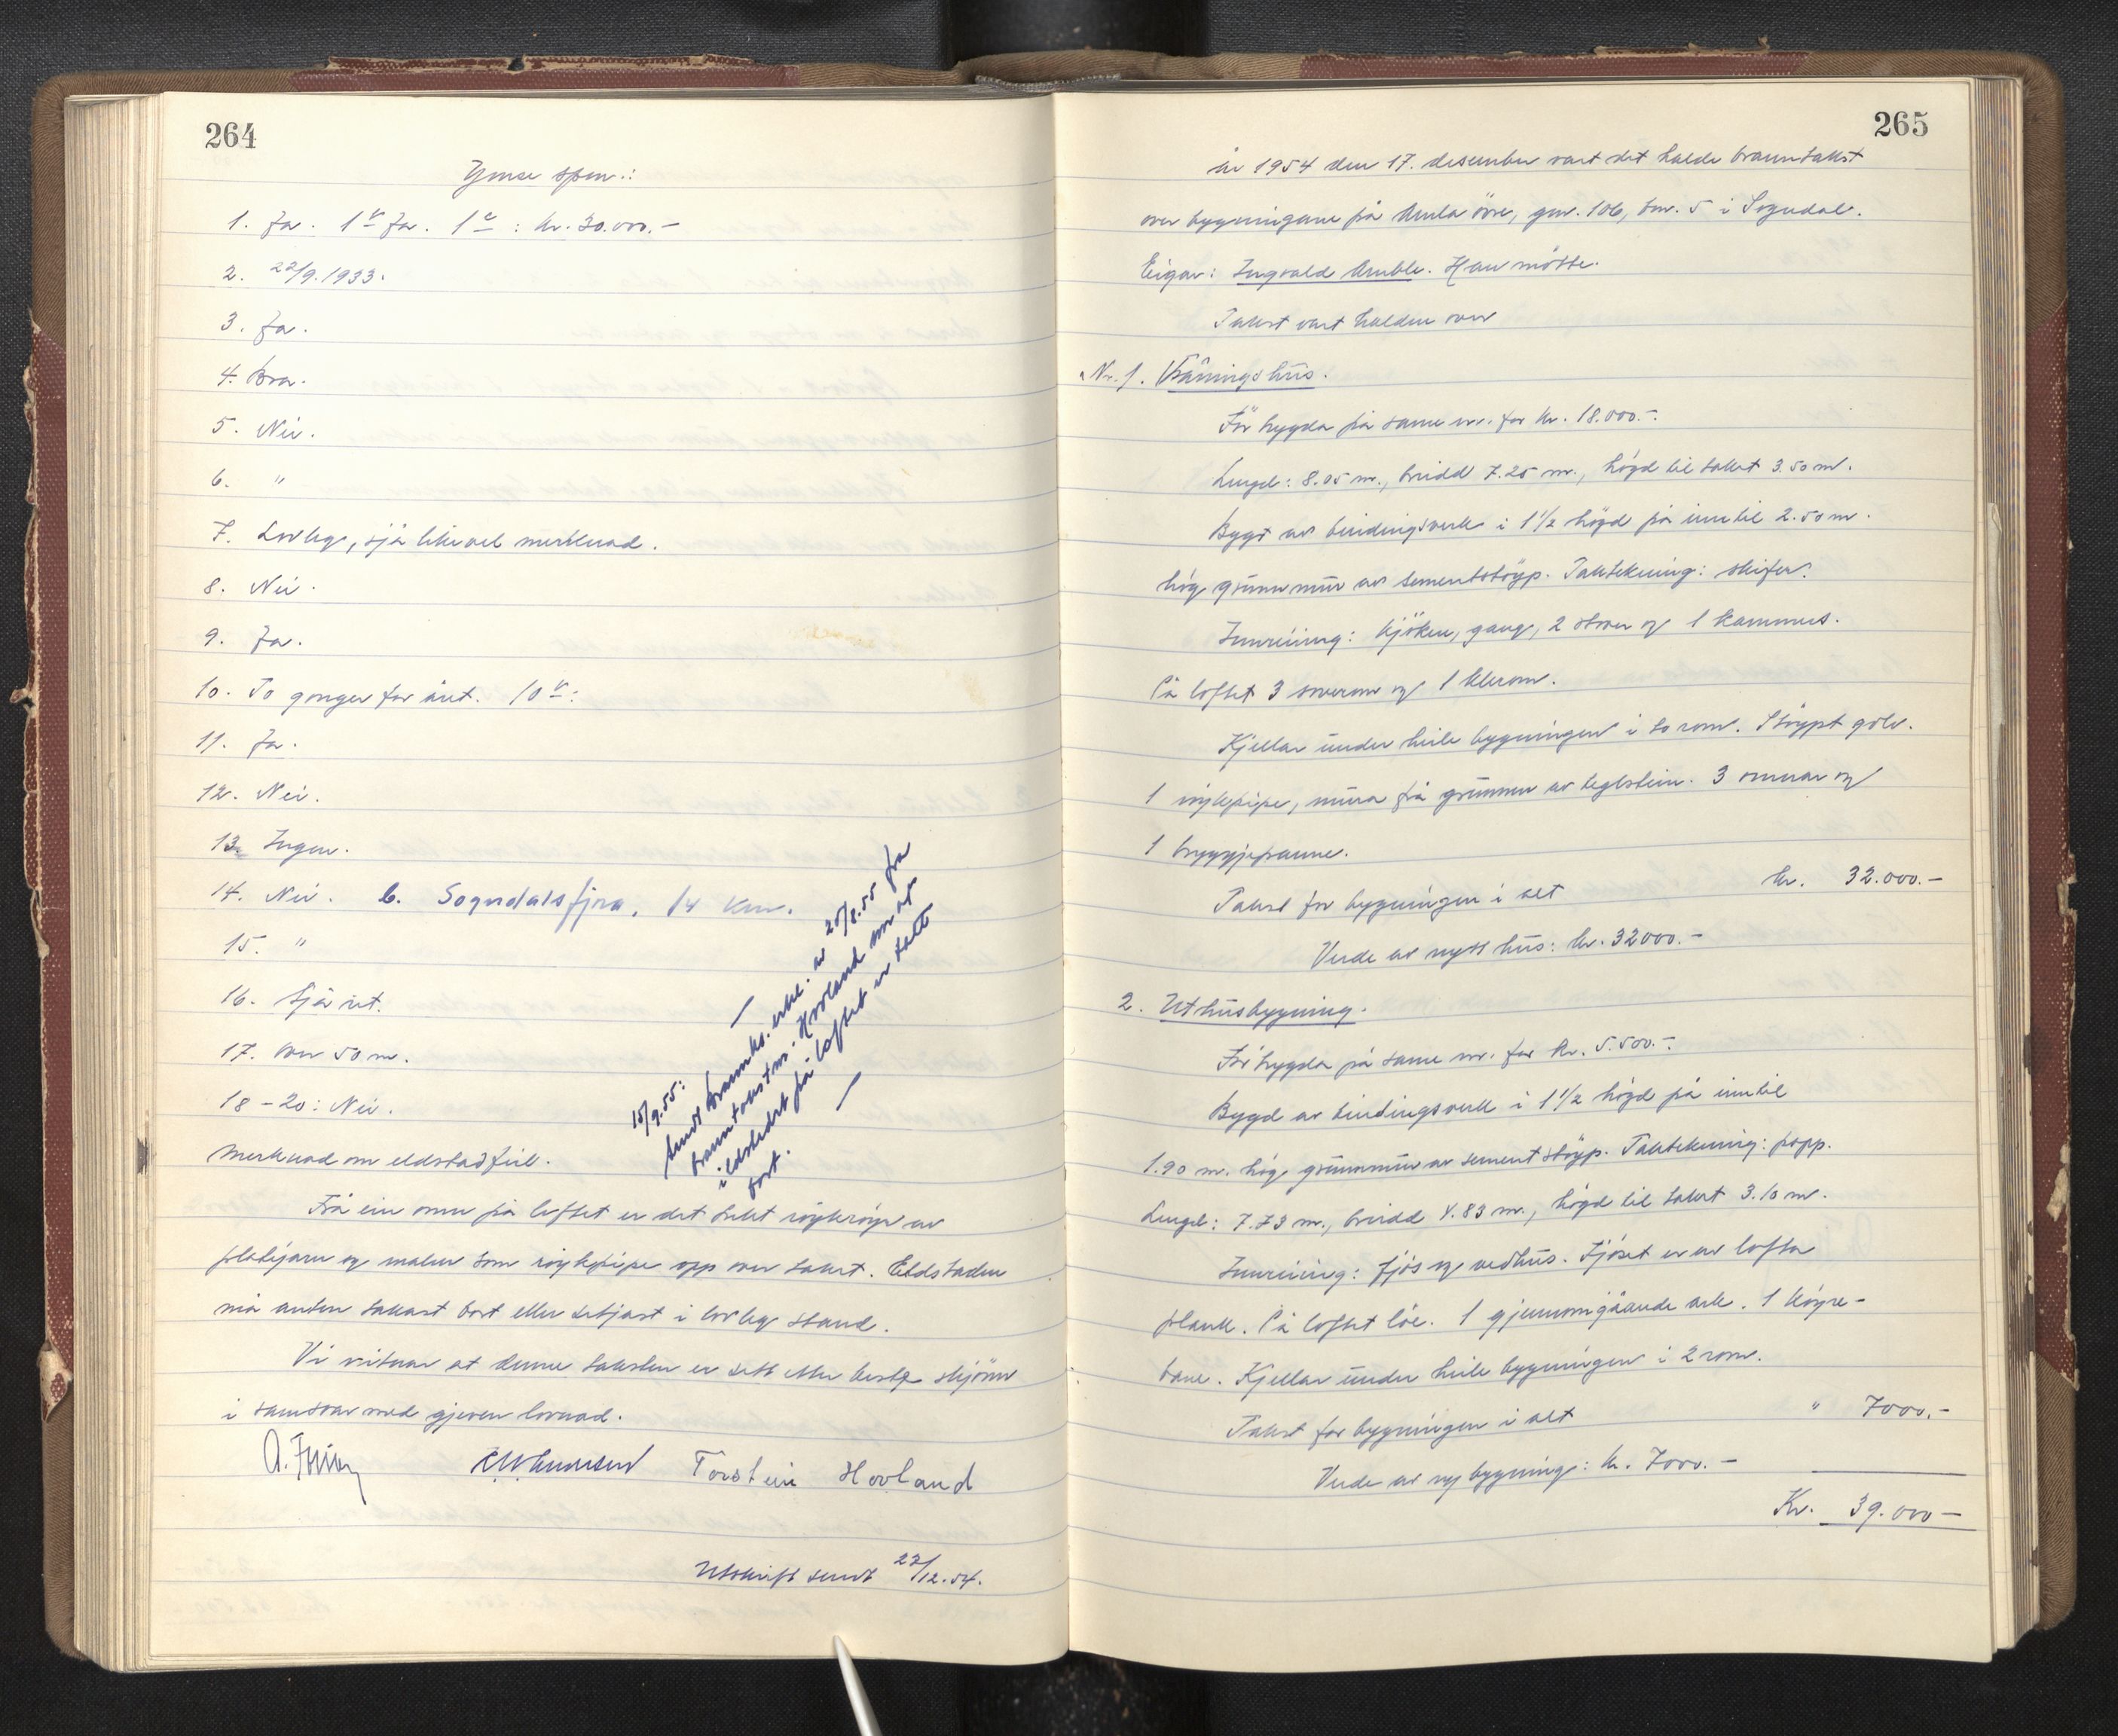 264
Ymse spm.:
1. Ja. 1ᵇ Ja. 1ᶜ: kr. 30.000.-
2. 22/9.1933.
3. Ja.
4. Bra.
5. Nei.
6. "
7. Lovleg, sjå likevel merknad.
8. Nei.
9. Ja.
10. To gonger for året. 10ᵇ:
11. Ja.
12. Nei.
13. Ingen.
14. Nei. b. Sogndalsfjøra, 14 km.
15. "
16. Sjå
17. Over 50 m.
18-20: Nei.
Merknad om eldstadfeil.
Frå ein omn på loftet er det sett røykrøyr av
platejarn og som røykpipe opp over taket. Eldstaden
må anten takast bort eller setjast i lovleg stand.
Vi vitnar at denne taksten er sett etter beste skjønn
i samsvar med gjeven lovnad.
Torstein Hovland
Utskrift sendt 22/12.54.
15/9.55:
Sendt brannk. erkl. av 25/8.55 frå
branntakstm. Hovland om at
ildstedet på loftet er tatt
bort.
265
År 1954 den 17. desember vart det halde branntakst
over bygningane på Amla øvre, gnr. 106, bnr. 5 i Sogndal.
Eigar: Ingvald Amble. Han møtte.
Takst vart halden over
Nr. 1. Våningshus.
Før trygda på same nr. for kr. 18.000.-
Lengd: 8.05 m., breidd 7.25 m., høgd til taket 3.50 m.
Bygt av bindingsverk i 1 1/2 høgd på inntil 2.50 m.
høg grunnmur av sementstøyp. Taktekning: skifer.
Innreiing: kjøken, gang, 2 stover og 1 kammers.
På loftet 3 soverom og 1 klerom.
Kjellar under heile bygningen i to rom. Støypt golv.
1 røykpipe, mura frå grunnen av teglstein. 3 omnar og
1 bryggjepanne.
Takst for bygningen i alt kr. 32.000.-
Verde av nytt hus: kr. 32000.-
2. Uthusbygning.
Før trygda på same nr. for kr. 5.500.-
Bygd av bindingsverk i 1 1/2 høgd på inntil
1.90 m. høg grunnmur av sementstøyp. Taktekning: papp.
Lengd: 7.73 m., breidd 4.83 m., høgd til taket 3.10 m.
Innreiing: fjøs og vedhus. Fjøset er av lafta
plank. På loftet løe. 1 gjennomgåande ark. 1 køyre-
bane. Kjellar under heile bygningen i 2 rom.
Takst for bygningen i alt " 7000.-
Verde av ny bygning: kr. 7000.-
Kr. 39.000-